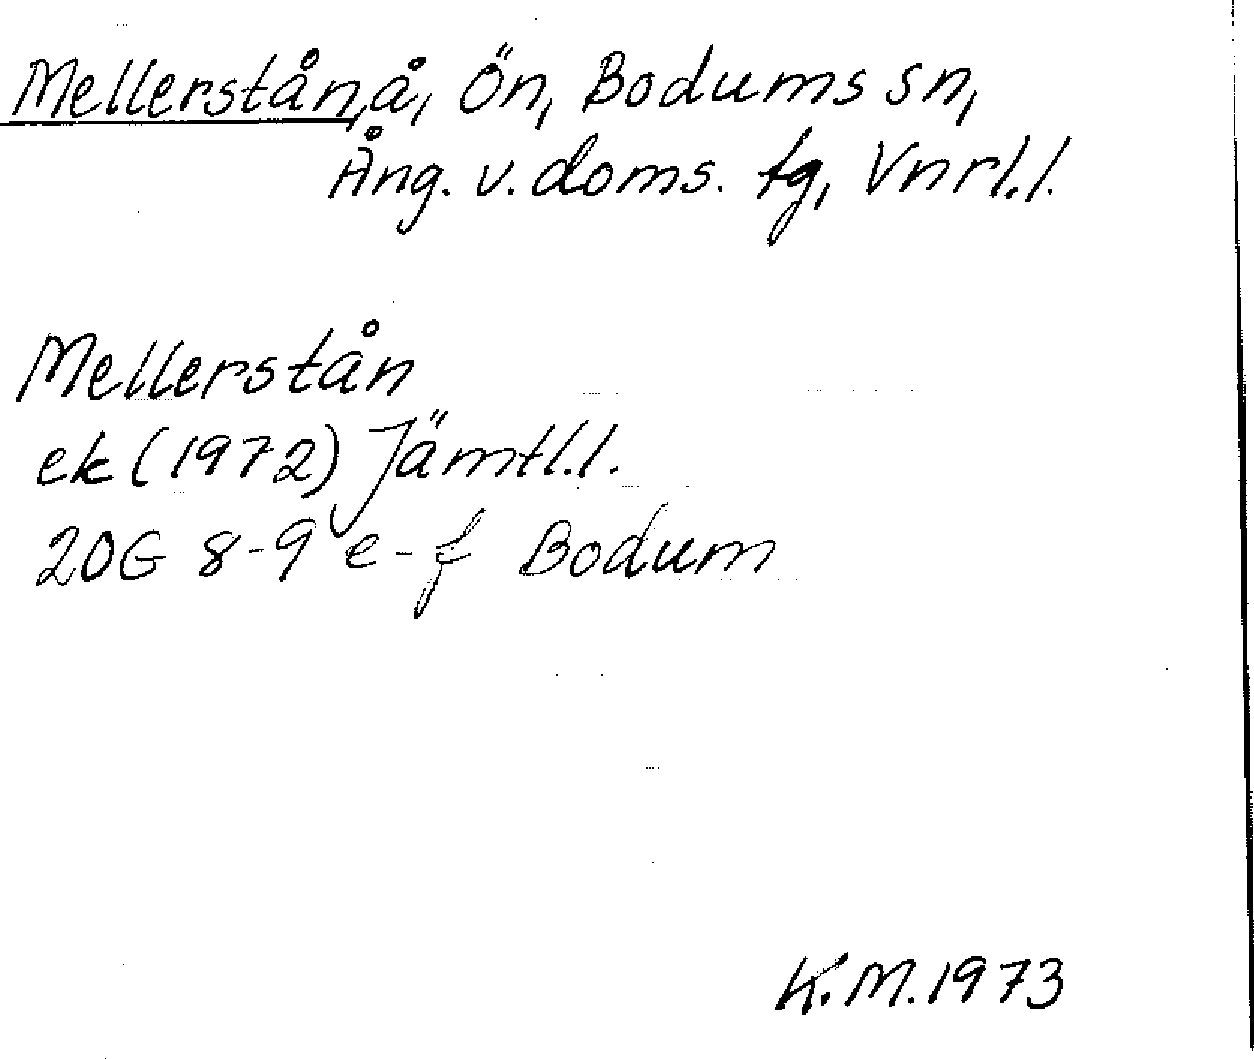 Mellerstån, å, Ön, Bodums sn,
Ång. v. doms. tg, Vnrl.l.
Mellerstån
ek (1972) Jämtl.l.
20G 8-9 e-f Bodum
K.M. 1973